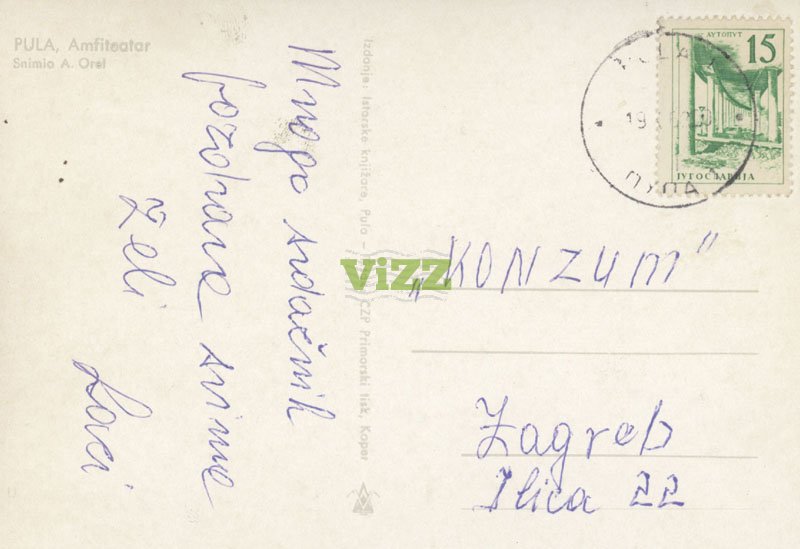 PULA, Amfiteatar
Snimio A. Orel
Mnogo srdačnih
pozdrava svima
želi
Laci
Izdanje: Istarska knjižara, Pula – CZP Primorski tisk, Koper
ViZZ
АУТОПУТ
15
ЈУГОСЛАВИЈА
PULA
19
ПУЛА
„KONZUM"
Zagreb
Ilica 22